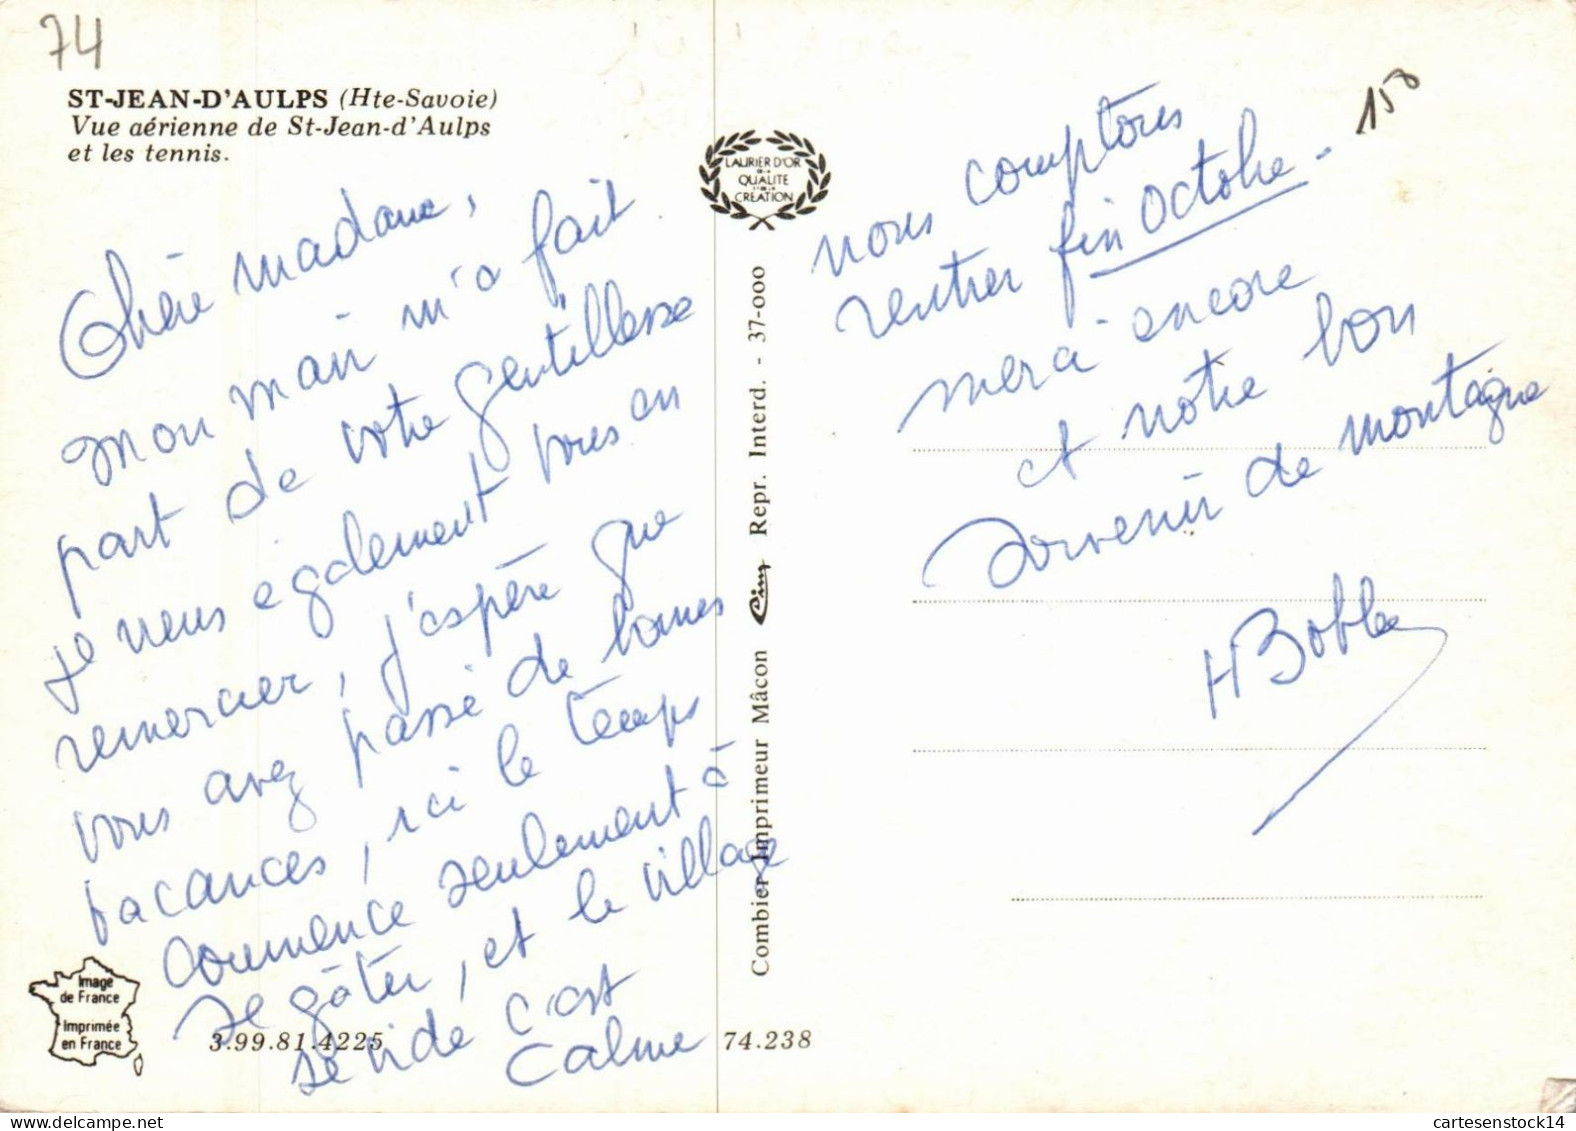 74
ST-JEAN-D'AULPS (Hte-Savoie)
Vue aérienne de St-Jean-d'Aulps
et les tennis.
Chère madame,
mon mari m'a fait
part de votre gentillesse
je veux également vous en
remercier, j'espère que
vous avez passé de bonnes
vacances, ici le temps
commence seulement à
se gâter, et le village
se vide c'est
calme
Image
de France
Imprimée
en France
3.99.81.4225
74.238
LAURIER D'OR
DE LA
QUALITE
ET DE LA
CREATION
Combier Imprimeur Mâcon Cim Repr. Interd. - 37-000
150
nous comptons
rentrer fin Octobre -
merci encore
et notre bon
souvenir de montagne
cartesenstock14